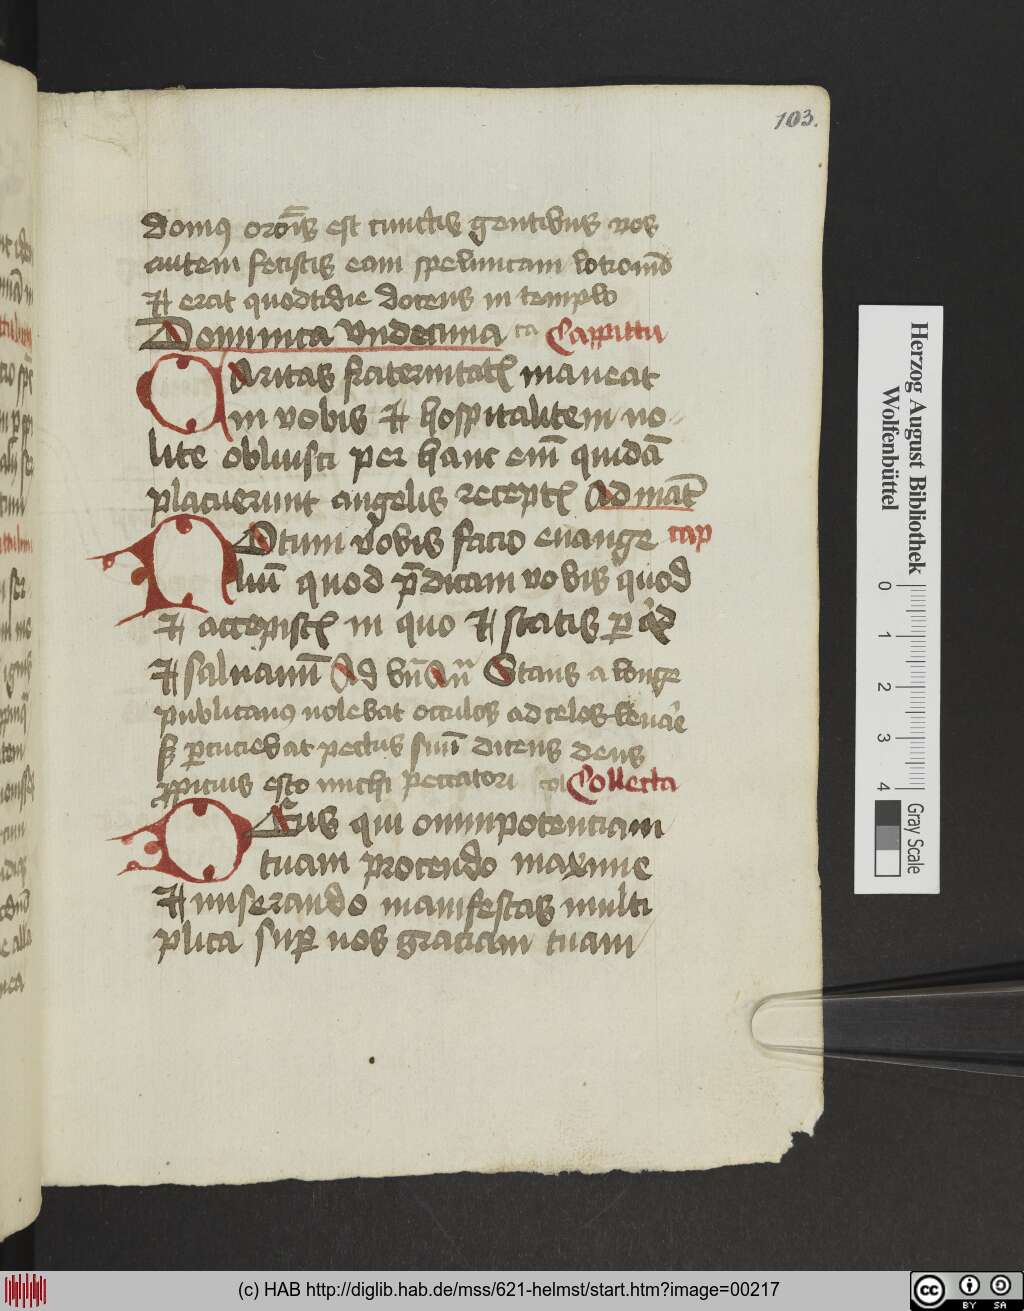 103.
domꝰ oroīs est cunctis gentibus vos
autem fecistis eam speluncam latronū
et erat quottidie docens in templo
Dominica vndecima ca Cappittu
Caritas fraternitatꝭ maneat
in vobis et hospitalitem no
lite obliuisci per hanc enī quidā
placuerunt angelis receptꝭ Ad mat̄
Notum vobis facio euange cap
liū quod p̄dicaui vobis quod
et accepistꝭ in quo et statis ꝑ
et saluamī Ad Stans a longe
publicanꝰ nolebat occulos ad celos leuare
sꝫ ꝑcuciebat pectus suū dicens deus
ppicius esto michi peccatori col Collecta
Deus qui omnipotenciam
tuam parcendo maxime
et miserando manifestas multi
plica suꝑ nos graciam tuam
Herzog August Bibliothek
Wolfenbüttel
0 1 2 3 4
Gray Scale
(c) HAB http://diglib.hab.de/mss/621-helmst/start.htm?image=00217
cc BY SA